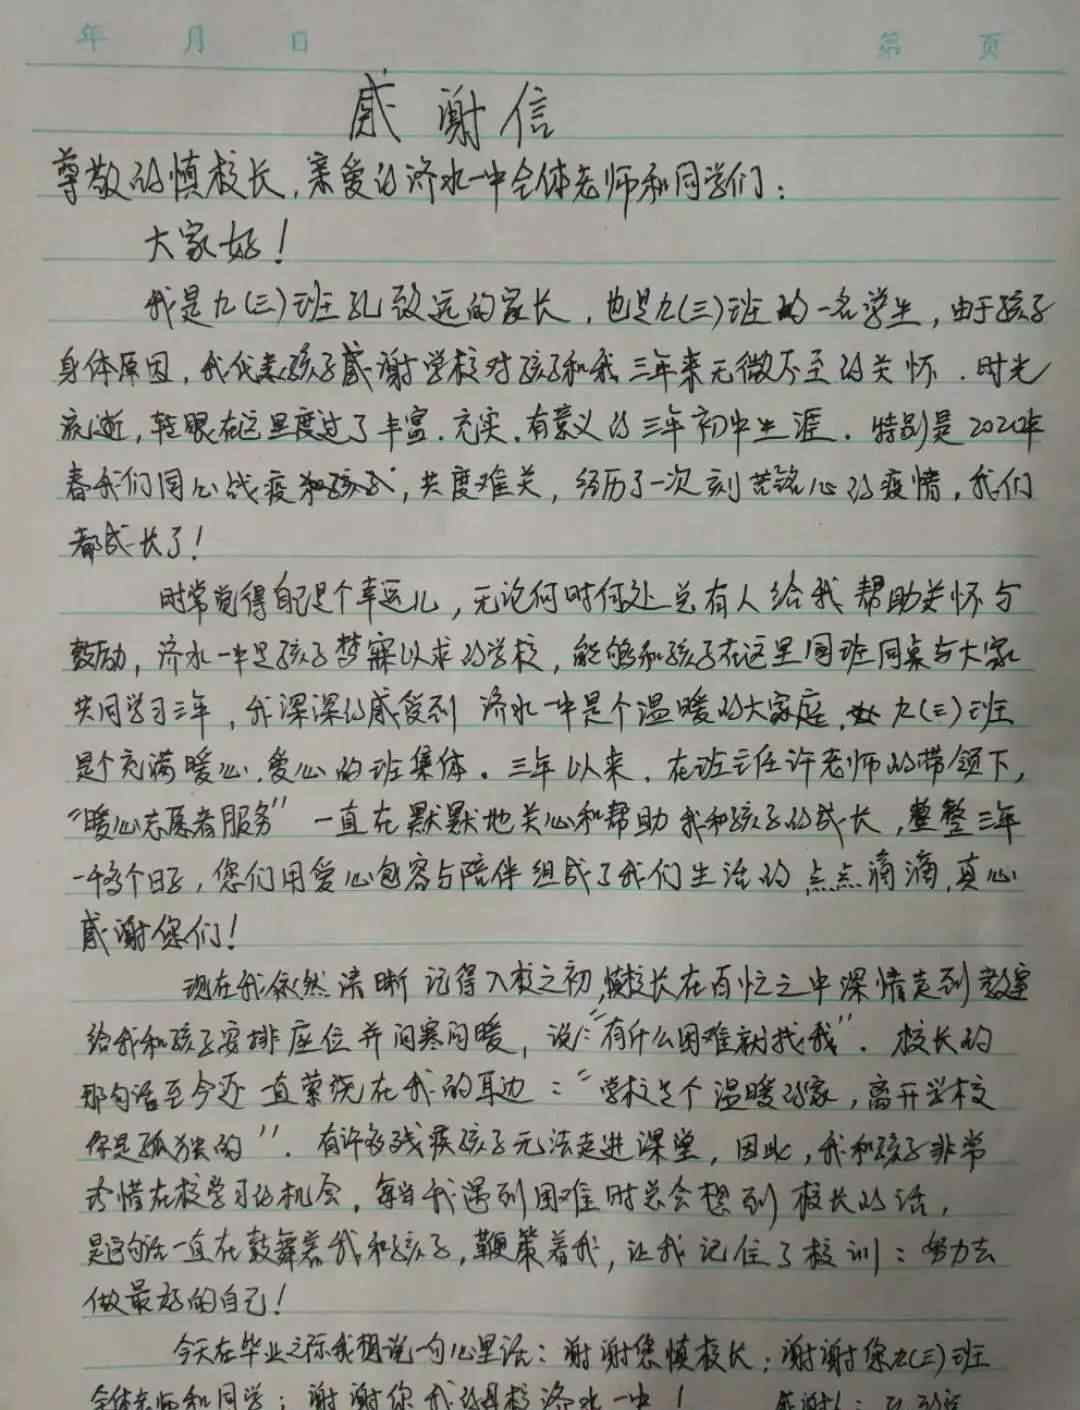 年 月 日 第 页
感谢信
尊敬的慎校长,亲爱的济水一中全体老师和同学们:
大家好!
我是九(三)班孔致远的家长,也是九(三)班的一名学生,由于孩子
身体原因,我代表孩子感谢学校对孩子和我三年来无微不至的关怀.时光
流逝,转眼在这里度过了丰富.充实.有意义的三年初中生涯.特别是2020年
春我们同心战疫,共度难关,经历了一次刻苦铭心的疫情,我们
都成长了!
时常觉得自己是个幸运儿,无论何时何处总有人给我帮助关怀与
鼓励,济水一中是孩子梦寐以求的学校,能够和孩子在这里同班同桌与大家
共同学习三年,我深深的感受到济水一中是个温暖的大家庭.九(三)班
是个充满暖心.爱心的班集体.三年以来.在班主任许老师的带领下,
“暖心志愿者服务”一直在默默地关心和帮助我和孩子的成长,整整三年
一千多个日子,您们用爱心包容与陪伴组成了我们生活的点点滴滴,真心
感谢您们!
现在我依然清晰记得入校之初,慎校长在百忙之中深情走到教室
给我和孩子安排座位并问寒问暖,说:“有什么困难就找我”.校长的
那句话至今还一直萦绕在我的耳边:“学校是个温暖的家,离开学校
你是孤独的”.有许多残疾孩子无法走进课堂,因此,我和孩子非常
珍惜在校学习的机会,每当我遇到困难时总会想到校长的话,
是这句话一直在鼓舞着我和孩子,鞭策着我,让我记住了校训:努力去
做最好的自己!
今天在毕业之际我想说一句心里话:谢谢您慎校长;谢谢您九(三)班
全体老师和同学;谢谢你我的母校济水一中!